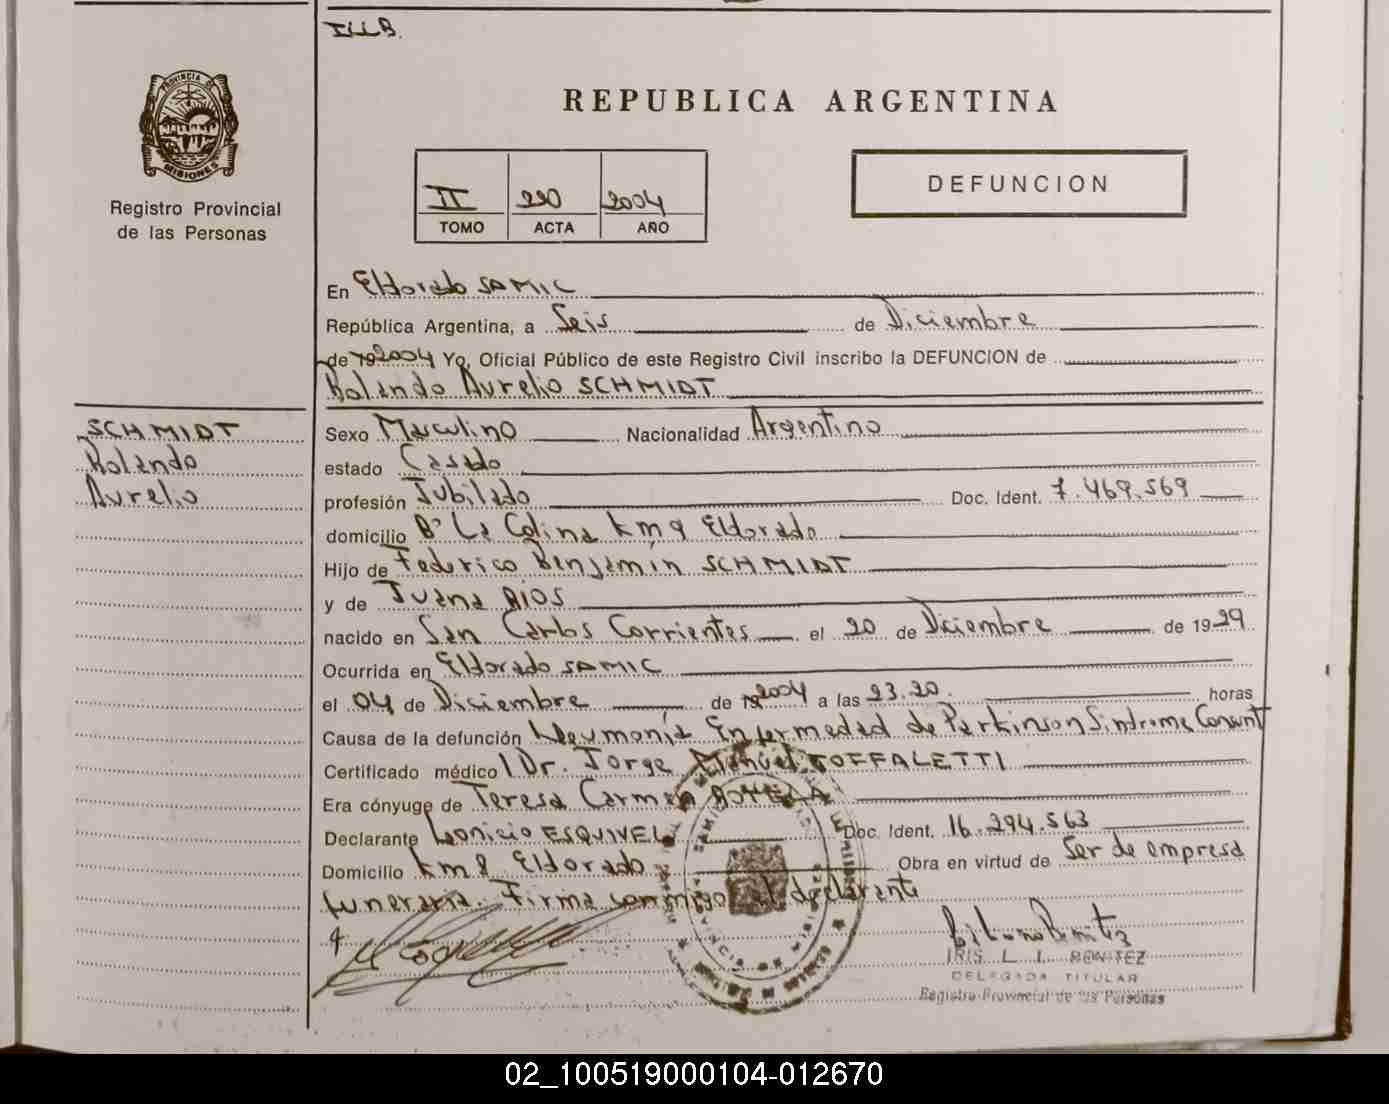 ILLB.
PROVINCIA DE
MISIONES
Registro Provincial
de las Personas
REPUBLICA ARGENTINA
II 220 2004
TOMO ACTA AÑO
DEFUNCION
En Eldorado SAMIC
República Argentina, a Seis de Diciembre
de 19 2004 Yo, Oficial Público de este Registro Civil inscribo la DEFUNCION de
Rolando Aurelio SCHMIDT
SCHMIDT
Rolando
Aurelio
Sexo Masculino Nacionalidad Argentino
estado Casado
profesión Jubilado Doc. Ident. 7.469.569
domicilio Bº La Colina km 9 Eldorado
Hijo de Federico Benjamín SCHMIDT
y de Juana RIOS
nacido en San Carlos Corrientes el 20 de Diciembre de 1929
Ocurrida en Eldorado SAMIC
el 04 de Diciembre de 19 2004 a las 23.20. horas
Causa de la defunción Neumonía Enfermedad de Parkinson Sindrome Convint
Certificado médico Dr. Jorge Manuel TOFFALETTI
Era cónyuge de Teresa Carmen
Declarante Leonicio ESQUIVEL Doc. Ident. 16.294.563
Domicilio km 9 Eldorado Obra en virtud de Ser de empresa
funeraria. Firma conmigo el declarante
IRIS L. I. BENITEZ
DELEGADA TITULAR
Registro Provincial de las Personas
02_100519000104-012670